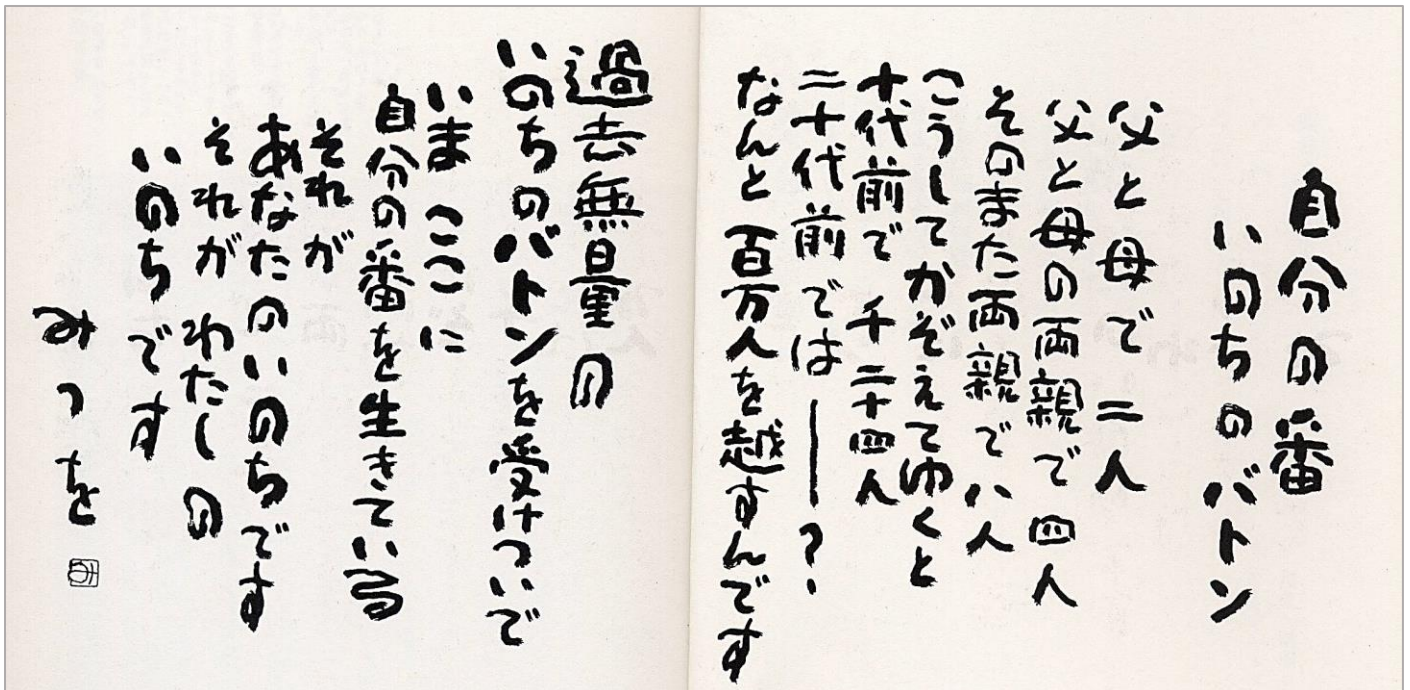 自分の番
いのちのバトン
父と母で 二人
父と母の両親で 四人
そのまた両親で 八人
こうしてかぞえてゆくと
十代前で 千二十四人
二十代前では ―?
なんと百万人を越すんです
過去無量の
いのちのバトンを受けついで
いま ここに
自分の番を生きている
それが
あなたのいのちです
それが わたしの
いのちです
みつを